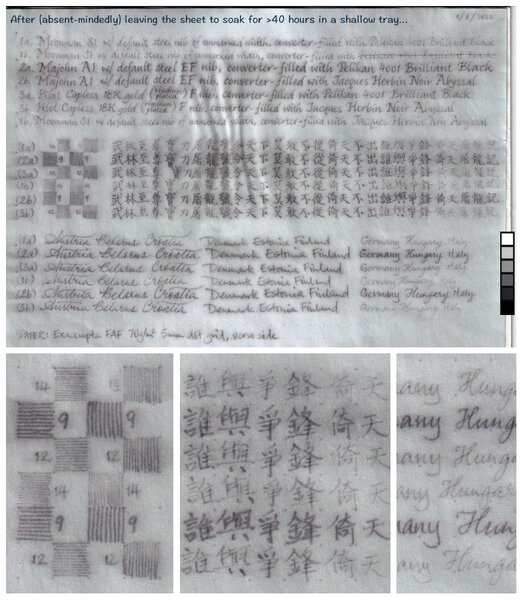 After (absent-mindedly) leaving the sheet to soak for >40 hours in a shallow tray...
/8/2022
1a. Moonman S1 w/ default steel nib of unmarked width, converter-filled with Pelikan 4001 Brilliant Black
1b. Moonman S1 w/ default steel nib of unmarked width, converter-filled with Pelikan 4001 Brilliant Black
2a. Majohn A1 w/ default steel EF nib, converter-filled with Pelikan 4001 Brilliant Black
2b. Majohn A1 w/ default steel EF nib, converter-filled with Jacques Herbin Noir Abyssal
3a. Pilot Capless 18K gold (rhodium plated) F nib, converter-filled with Pelikan 4001 Brilliant Black
3b. Pilot Capless 18K gold (rhodium plated) F nib, converter-filled with Jacques Herbin Noir Abyssal
1b. Moonman S1 w/ default steel nib of unmarked width, converter-filled with Jacques Herbin Noir Abyssal
(1a) 14 13 武林至尊寶刀屠龍號令天下莫敢不從倚天不出誰與爭鋒倚天屠龍記
(2a) 9 9 武林至尊寶刀屠龍號令天下莫敢不從倚天不出誰與爭鋒倚天屠龍記
(3a) 12 12 武林至尊寶刀屠龍號令天下莫敢不從倚天不出誰與爭鋒倚天屠龍記
(1b) 14 14 武林至尊寶刀屠龍號令天下莫敢不從倚天不出誰與爭鋒倚天屠龍記
(2b) 9 9 武林至尊寶刀屠龍號令天下莫敢不從倚天不出誰與爭鋒倚天屠龍記
(3b) 12 12 武林至尊寶刀屠龍號令天下莫敢不從倚天不出誰與爭鋒倚天屠龍記
(1a) Austria Belarus Croatia Denmark Estonia Finland Germany Hungary Italy
(2a) Austria Belarus Croatia Denmark Estonia Finland Germany Hungary Italy
(3a) Austria Belarus Croatia Denmark Estonia Finland Germany Hungary Italy
(1b) Austria Belarus Croatia Denmark Estonia Finland Germany Hungary Italy
(2b) Austria Belarus Croatia Denmark Estonia Finland Germany Hungary Italy
(3b) Austria Belarus Croatia Denmark Estonia Finland Germany Hungary Italy
PAPER: Exacompta FAF 70g/m² 5mm dot grid, verso side
14 13
9 9
12 12
14 14
9 9
12 12
誰與爭鋒倚天
誰與爭鋒倚天
誰與爭鋒倚天
誰與爭鋒倚天
誰與爭鋒倚天
誰與爭鋒倚天
many Hunga
any Hung
any Hung
many Hungar
any Hun
many Hunga